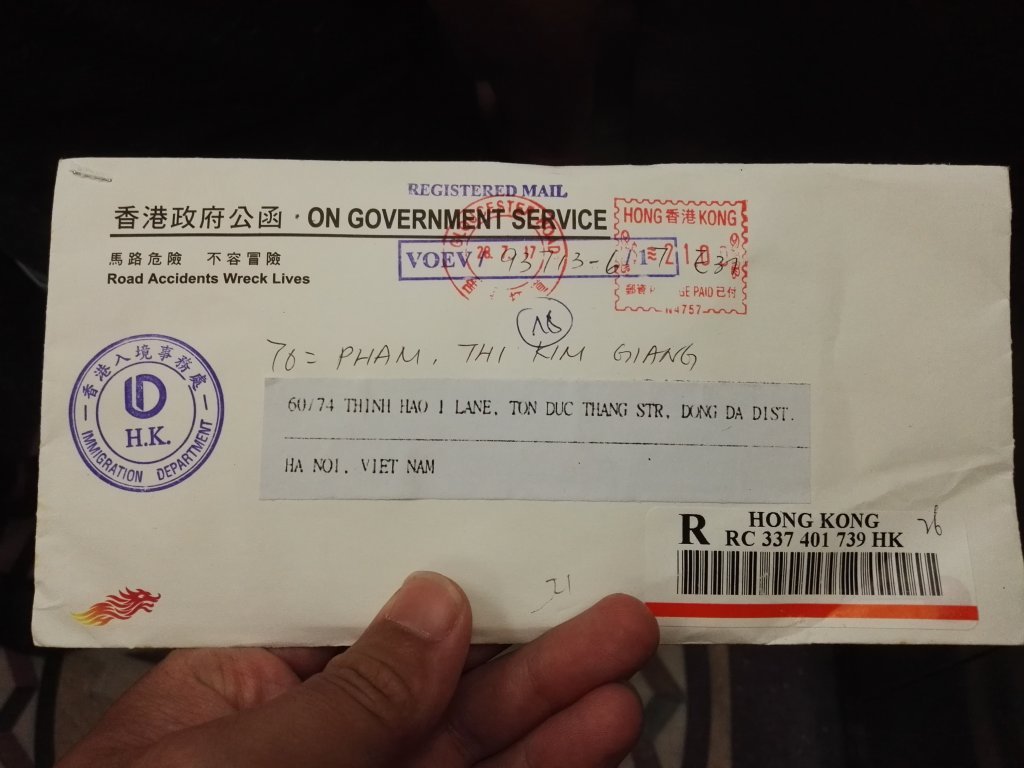 REGISTERED MAIL
香港政府公函 · ON GOVERNMENT SERVICE
馬路危險 不容冒險
Road Accidents Wreck Lives
GLOUCESTER ROAD
28.7.17
HONG 香港 KONG
210
郵資 PAID 已付
N4757
VOEV
NB
TO = PHAM, THI KIM GIANG
60/74 THINH HAO 1 LANE, TON DUC THANG STR, DONG DA DIST.
HA NOI, VIET NAM
香港入境事務處
ID
H.K.
IMMIGRATION DEPARTMENT
R HONG KONG
RC 337 401 739 HK
26
21